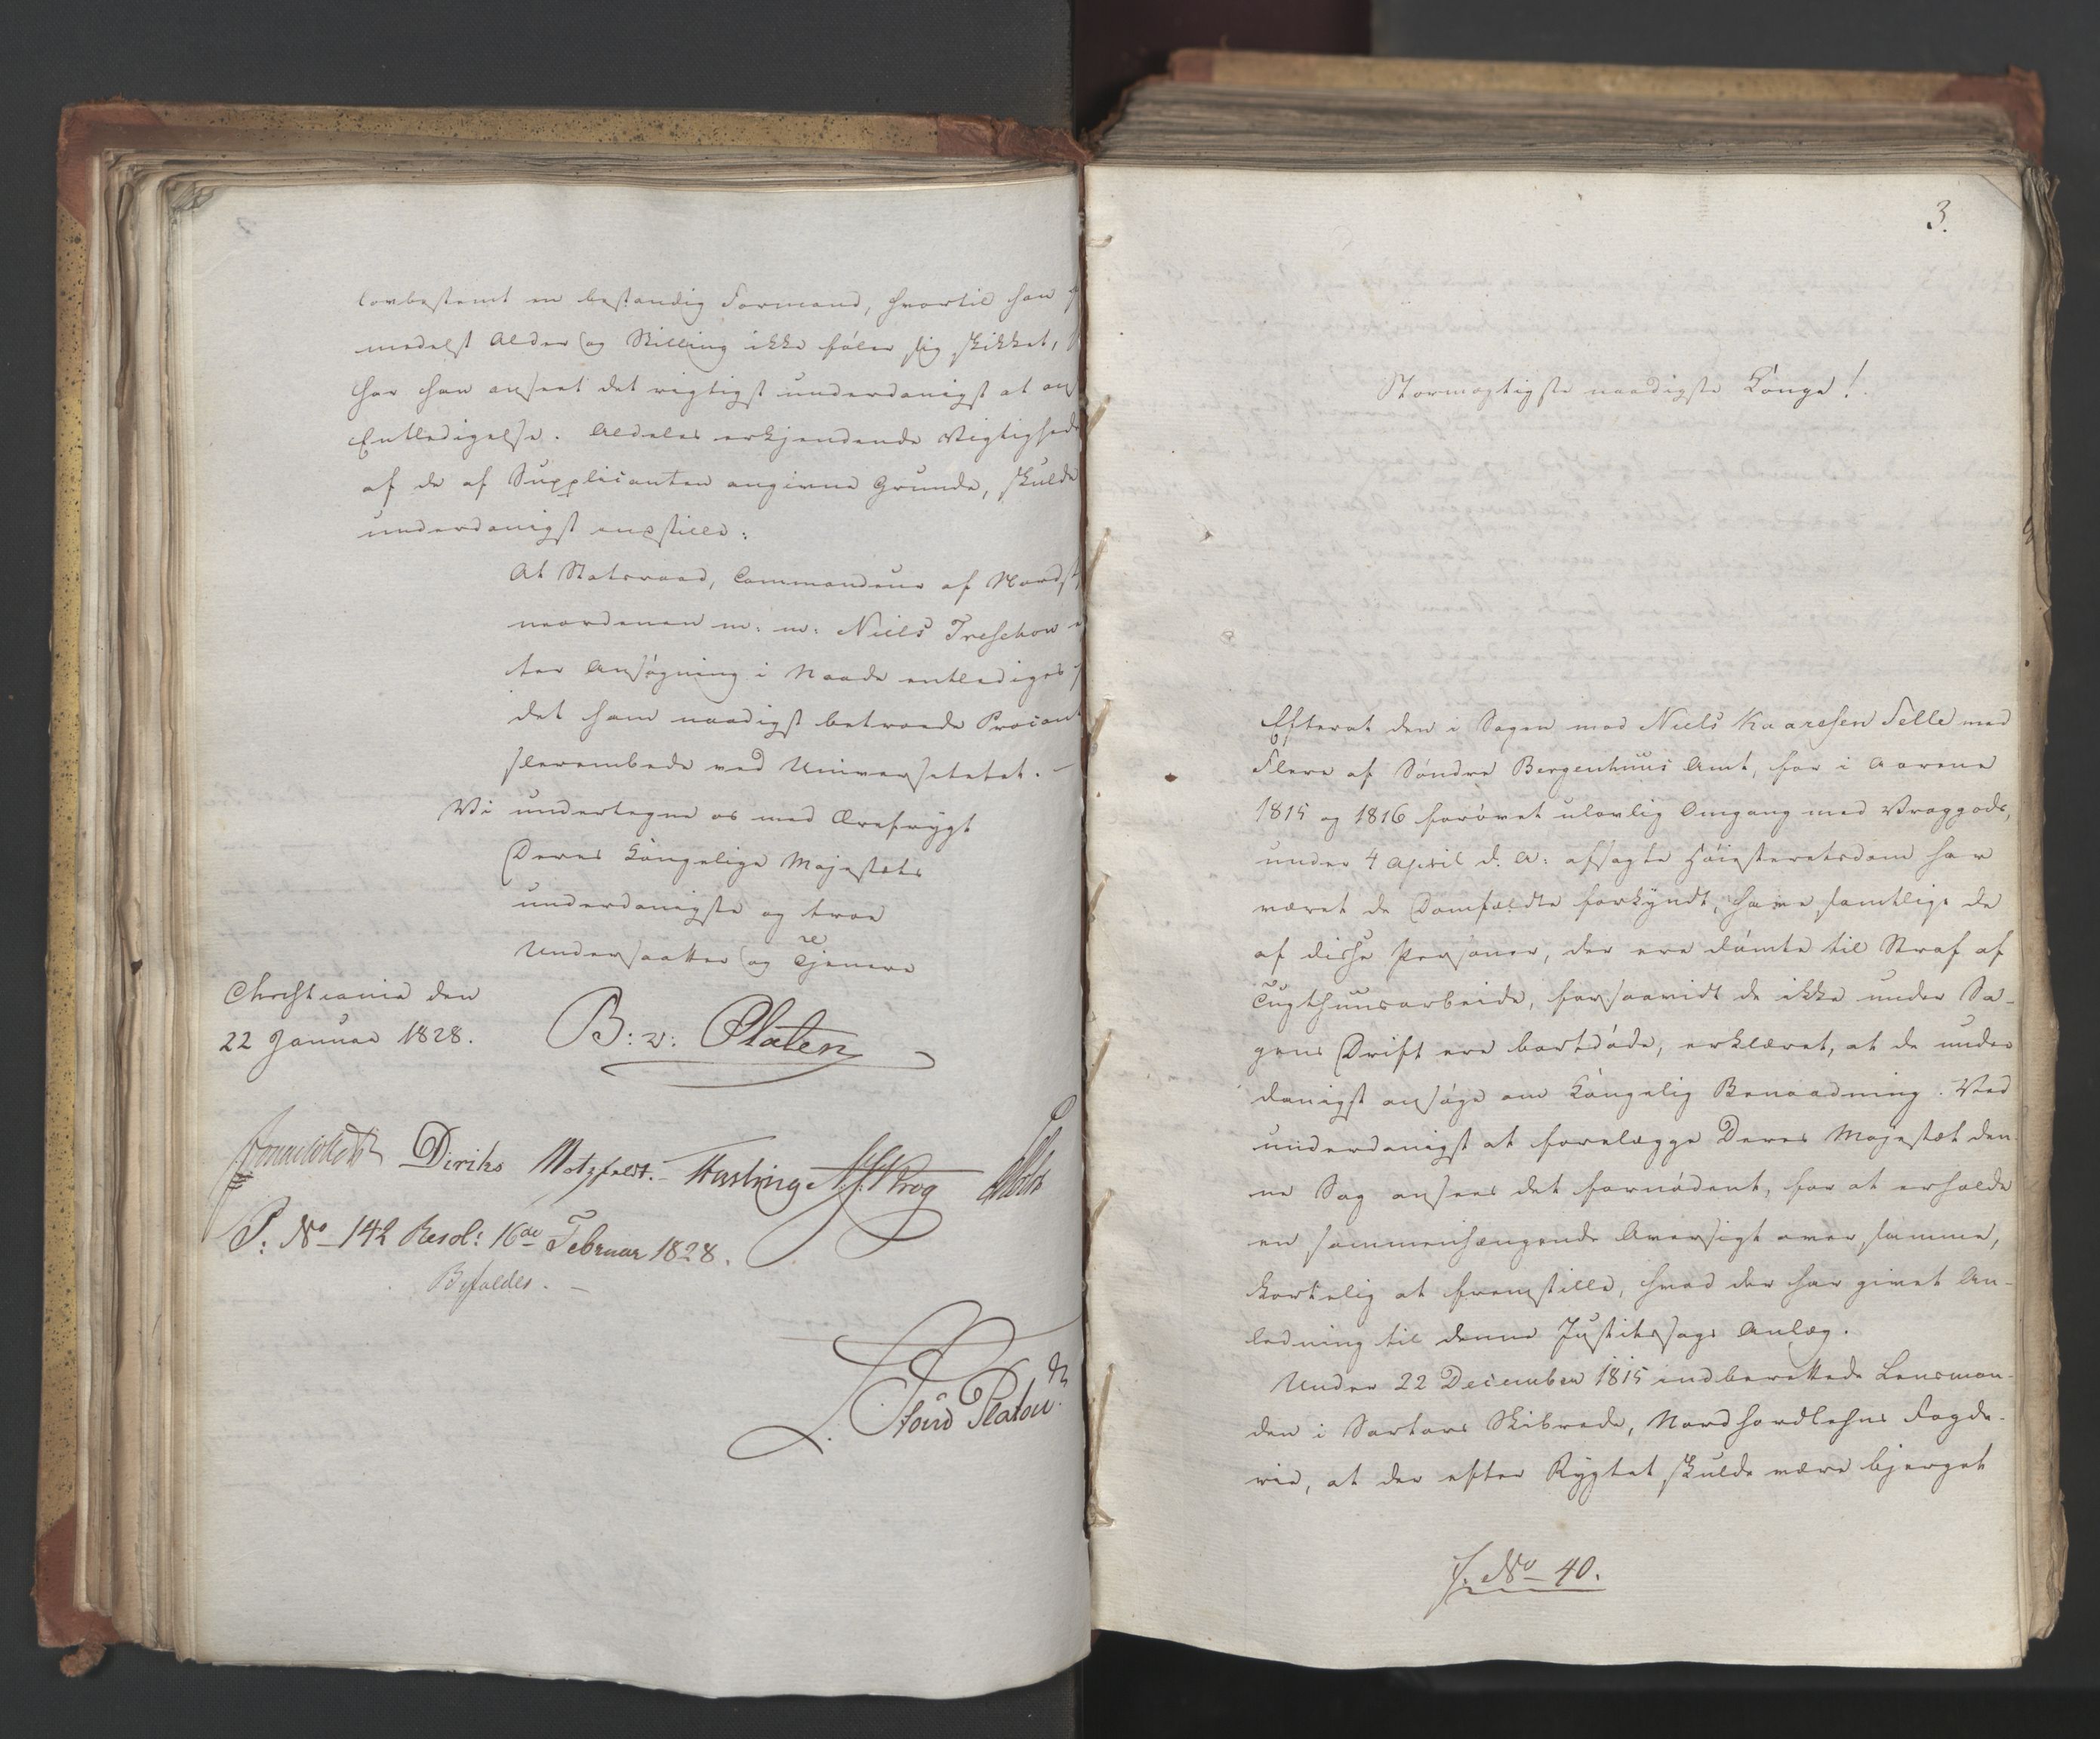 lovbestemt en bestandig Formand, hvortil han
medelst Alder og Stilling ikke føler sig skikket,
har han anseet det rigtigst underdanigst at
Entledigelse. Aldeles erkjendende Vigtighed
af de af Supplicanten angivne Grunde, skulde
underdanigst indstille:
At Statsraad, Commandeur af Nordst
neordenen m: m: Niels Treschow
ter Ansøgning i Naade entlediges
det ham naadigst betroede Procant
slerembede ved Universitetet. —
Vi undertegne os med Ærefrygt
Deres Kongelige Majestæts
underdanigste og troe
Undersaatter og Tjenere
Christiania den
22 Januar 1828.
B: v: Platen
Diriks Motzfeldt. Fasting Krog
P: No 142 Resol: 16de Februar 1828.
Bifaldes. —
Platou
3.
Stormægtigste naadigste Konge!
Efterat den i Sagen mod Niels Kaaresen Telle med
Flere af Søndre Bergenhuus Amt, for i Aarene
1815 og 1816 forøvet ulovlig Omgang med Vraggods,
under 4 April d: A: afsagte Høiesteretsdom har
været de Domfældte forkyndt, have samtlige de
af disse Personer, der ere dømte til Straf af
Tugthuusarbeide, forsaavidt de ikke under Sa-
gens Drift ere bortdøde, erklæret, at de under
danigst ansøge om Kongelig Benaadning. Ved
underdanigst at forelægge Deres Majestæt den-
ne Sag ansees det fornødent, for at erholde
en sammenhængende Oversigt over samme,
kortelig at fremstille, hvad der har givet An-
ledning til denne Justitssags Anlæg.
Under 22 December 1815 indberettede Lensman-
den i Sartors Skibrede, Nordhordlehns Fogde-
rie, at der efter Rygtet skulde være bjerget
J. No 40.